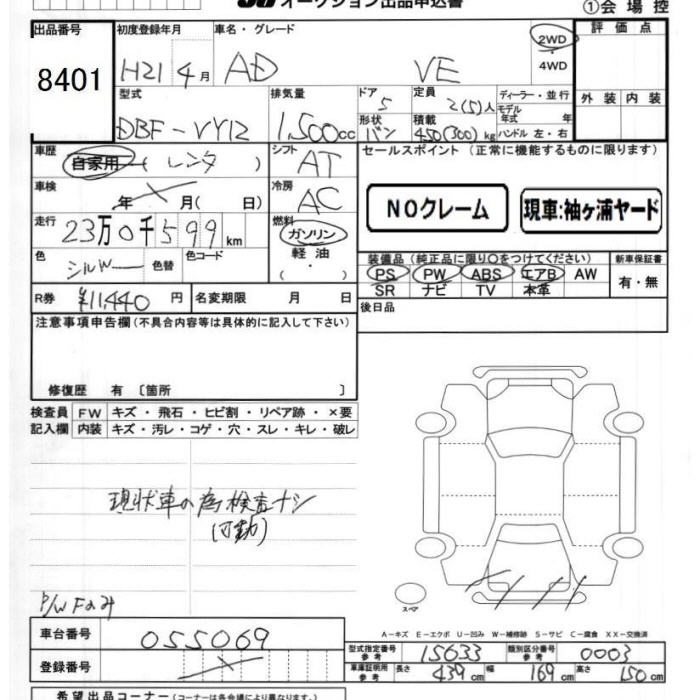 オークション出品申込書 ①会場控
出品番号 8401
初度登録年月 H21 4月
車名・グレード AD VE
2WD
・
4WD
評価点
外装 内装
型式 DBF-VY12
排気量 1,500cc
ドア 5
形状 バン
定員 2(5)人
積載 450(300)kg
ディーラー・並行
モデル年式 年
ハンドル 左・右
車歴 自家用 (レンタ)
シフト AT
車検 年 月(日)
冷房 AC
走行 23万0千599km
燃料 ガソリン
軽油
(・)
色 シルバー 色替 色コード
R券 ¥11,440円 名変期限 月 日
セールスポイント(正常に機能するものに限ります)
NOクレーム
現車:袖ヶ浦ヤード
装備品(純正品に限り○をつけてください) 新車保証書
PS PW ABS エアB AW
SR ナビ TV 本革
有・無
後日品
注意事項申告欄(不具合内容等は具体的に記入して下さい)
修復歴 有〔箇所 〕
検査員 FW キズ・飛石・ヒビ割・リペア跡・×要
記入欄 内装 キズ・汚レ・コゲ・穴・スレ・キレ・破レ
現状車の為検査ナシ
(可動)
P/W Fのみ
スペア
A-キズ E-エクボ U-凹み W-補修跡 S-サビ C-腐食 XX-交換済
車台番号 055069
登録番号
型式指定番号 参考 15633 類別区分番号 参考 0003
車庫証明用 参考 長さ 439cm 幅 169cm 高さ 150cm
希望出品コーナー(コーナーは各会場により異なります。)